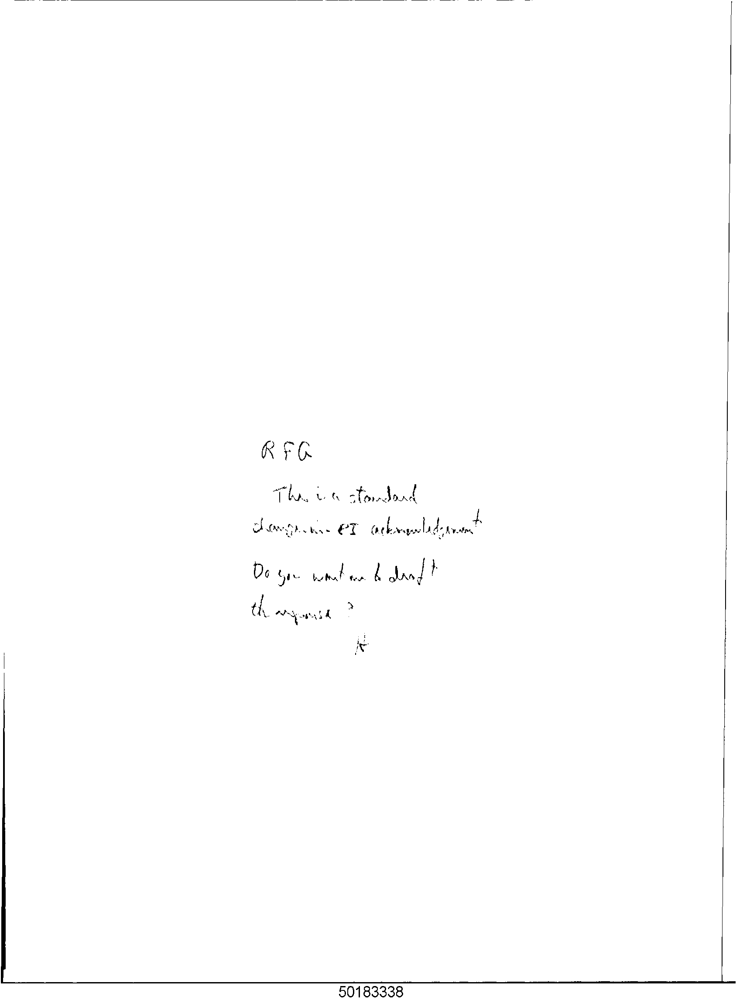 RFG
This is a standard
change in PI acknowledgement
Do you want me to draft
the response?
50183338